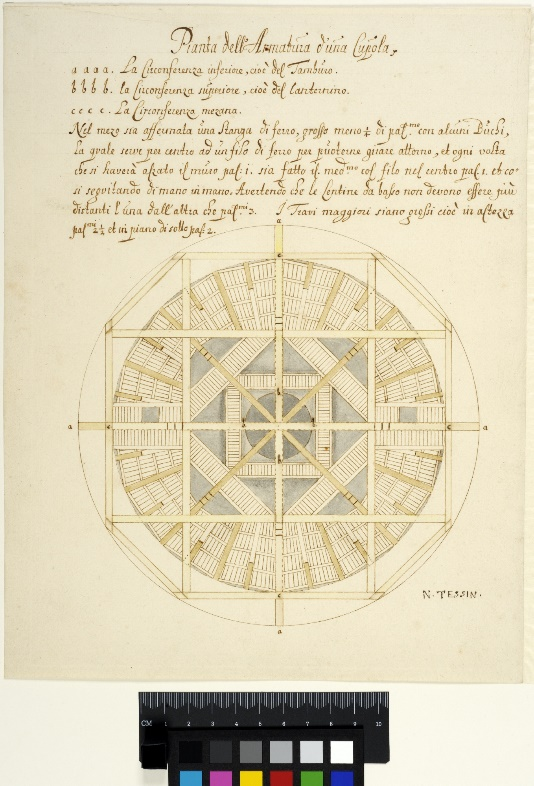 Pianta dell'Armatura d'una Cupola,
a a a a. La Circonferenza inferiore, cioè del Tamburo.
b b b b. la Circonferenza superiore, cioè del lanternino.
c c c c. La Circonferenza mezana.
Nel mezo sia affermata una Stanga di ferro, grosso meno ¼ di pal.mo con alcuni Buchi,
la quale serve per centro ad un filo di ferro per puoterne girare attorno, et ogni volta
che si haverà alzato il muro pal: 1. sia fatto il med.mo col filo nel centro pal. 1. et co-
si seguitando di mano in mano. Avertendo che le Centine da basso non devono essere più
distanti l'una dall'altra che pal.mi 3. I Travi maggiori siano grossi cioè in altezza
pal.mi 2 ½ et in piano di sotto pal. 2.
a
c
a c b b c a
b
c
a
N. TESSIN.
CM 1 2 3 4 5 6 7 8 9 10